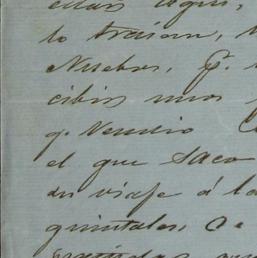 ellas aqui,
lo traian,
Nuebos, p.
cibio unos
q. Venesio
el que saco
su viaje á la
quintales, Ce